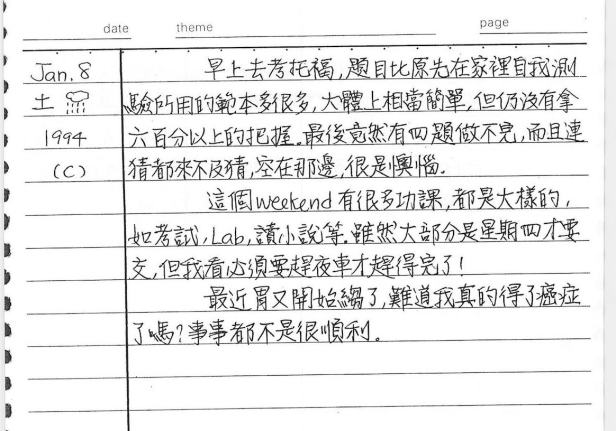 date theme page
Jan. 8 早上去考托福,題目比原先在家裡自我測
土 驗所用的範本多很多,大體上相當簡單,但仍沒有拿
1994 六百分以上的把握。最後竟然有四題做不完,而且連
(C) 猜都來不及猜,空在那邊,很是懊惱.
這個weekend有很多功課,都是大樣的,
如考試,Lab,讀小說等.雖然大部分是星期四才要
交,但我看必須要趕夜車才趕得完了!
最近胃又開始縐了,難道我真的得了癌症
了嗎?事事都不是很順利。